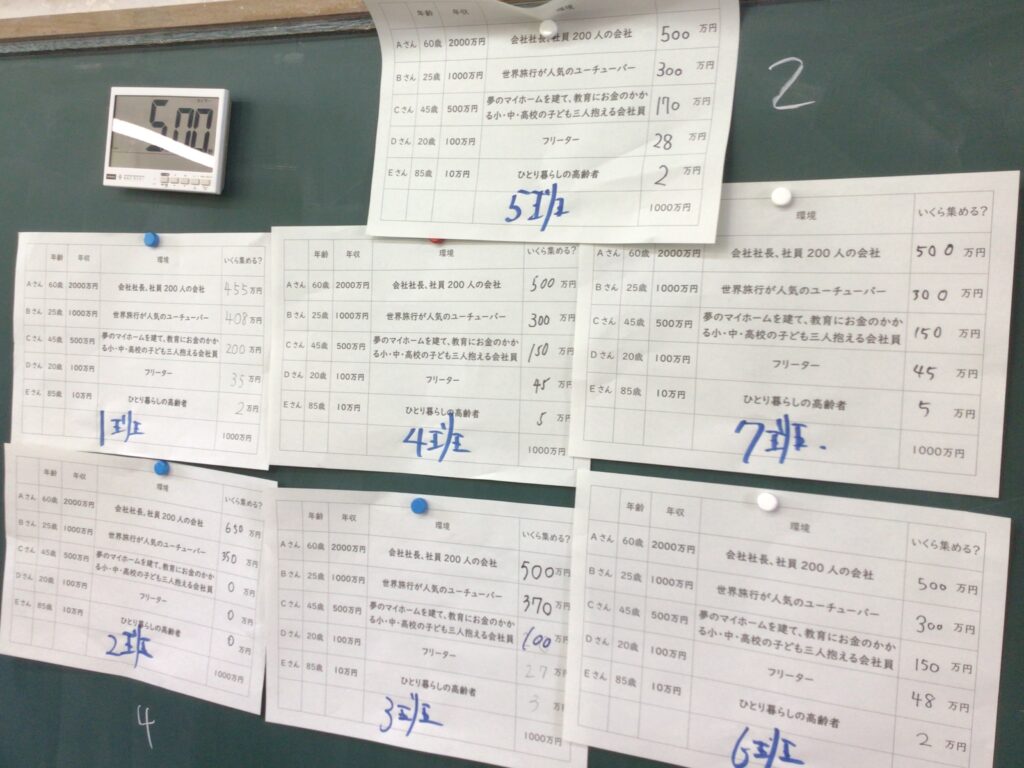 500
年齢 年収 環境
Aさん 60歳 2000万円 会社社長、社員200人の会社 500 万円
Bさん 25歳 1000万円 世界旅行が人気のユーチューバー 300 万円
Cさん 45歳 500万円 夢のマイホームを建て、教育にお金のかか
る小・中・高校の子ども三人抱える会社員 170 万円
Dさん 20歳 100万円 フリーター 28 万円
Eさん 85歳 10万円 ひとり暮らしの高齢者 2 万円
5班 1000万円
2
年齢 年収 環境 いくら集める?
Aさん 60歳 2000万円 会社社長、社員200人の会社 455 万円
Bさん 25歳 1000万円 世界旅行が人気のユーチューバー 408 万円
Cさん 45歳 500万円 夢のマイホームを建て、教育にお金のかか
る小・中・高校の子ども三人抱える会社員 200 万円
Dさん 20歳 100万円 フリーター 35 万円
Eさん 85歳 10万円 ひとり暮らしの高齢者 2 万円
1班 1000万円
年齢 年収 環境 いくら集める?
Aさん 60歳 2000万円 会社社長、社員200人の会社 500 万円
Bさん 25歳 1000万円 世界旅行が人気のユーチューバー 300 万円
Cさん 45歳 500万円 夢のマイホームを建て、教育にお金のかか
る小・中・高校の子ども三人抱える会社員 150 万円
Dさん 20歳 100万円 フリーター 45 万円
Eさん 85歳 10万円 ひとり暮らしの高齢者 5 万円
4班 1000万円
環境 いくら集める?
Aさん 60歳 2000万円 会社社長、社員200人の会社 500 万円
Bさん 25歳 1000万円 世界旅行が人気のユーチューバー 300 万円
Cさん 45歳 500万円 夢のマイホームを建て、教育にお金のかか
る小・中・高校の子ども三人抱える会社員 150 万円
Dさん 20歳 100万円 フリーター 45 万円
Eさん 85歳 10万円 ひとり暮らしの高齢者 5 万円
7班. 1000万円
年齢 年収 環境 いくら集める?
Aさん 60歳 2000万円 会社社長、社員200人の会社 650 万円
Bさん 25歳 1000万円 世界旅行が人気のユーチューバー 350 万円
Cさん 45歳 500万円 夢のマイホームを建て、教育にお金のかか
る小・中・高校の子ども三人抱える会社員 0 万円
Dさん 20歳 100万円 フリーター 0 万円
Eさん 85歳 10万円 ひとり暮らしの高齢者 0 万円
2班 1000万円
4
年齢 年収 環境 いくら集める?
Aさん 60歳 2000万円 会社社長、社員200人の会社 500 万円
Bさん 25歳 1000万円 世界旅行が人気のユーチューバー 370 万円
Cさん 45歳 500万円 夢のマイホームを建て、教育にお金のかか
る小・中・高校の子ども三人抱える会社員 100 万円
Dさん 20歳 100万円 フリーター 27 万円
Eさん 85歳 10万円 ひとり暮らしの高齢者 3 万円
3班 1000万円
年齢 年収 環境 いくら集める?
Aさん 60歳 2000万円 会社社長、社員200人の会社 500 万円
Bさん 25歳 1000万円 世界旅行が人気のユーチューバー 300 万円
Cさん 45歳 500万円 夢のマイホームを建て、教育にお金のかか
る小・中・高校の子ども三人抱える会社員 150 万円
Dさん 20歳 100万円 フリーター 48 万円
Eさん 85歳 10万円 ひとり暮らしの高齢者 2 万円
6班 1000万円